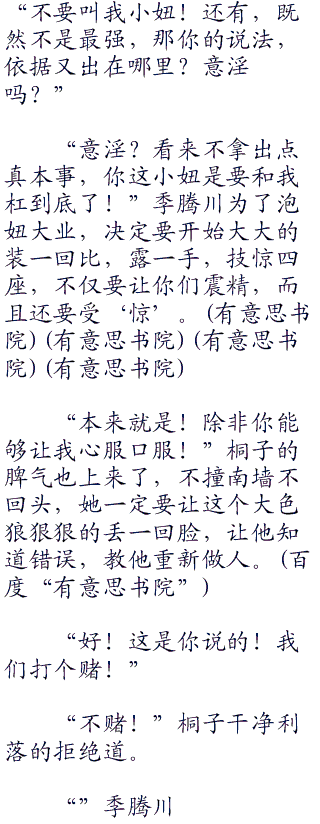 “不要叫我小妞！还有，既
然不是最强，那你的说法，
依据又出在哪里？意淫
吗？”
“意淫？看来不拿出点
真本事，你这小妞是要和我
杠到底了！”季腾川为了泡
妞大业，决定要开始大大的
装一回比，露一手，技惊四
座，不仅要让你们震精，而
且还要受‘惊’。（有意思书
院）（有意思书院）（有意思书
院）（有意思书院）
“本来就是！除非你能
够让我心服口服！”桐子的
脾气也上来了，不撞南墙不
回头，她一定要让这个大色
狼狠狠的丢一回脸，让他知
道错误，教他重新做人。（百
度“有意思书院”）
“好！这是你说的！我
们打个赌！”
“不赌！”桐子干净利
落的拒绝道。
“”季腾川